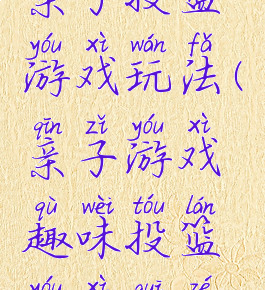 亲子投篮
yóu xì wán fǎ
游戏玩法(
qīn zǐ yóu xì
亲子游戏
qù wèi tóu lán
趣味投篮
yóu xì guī zé